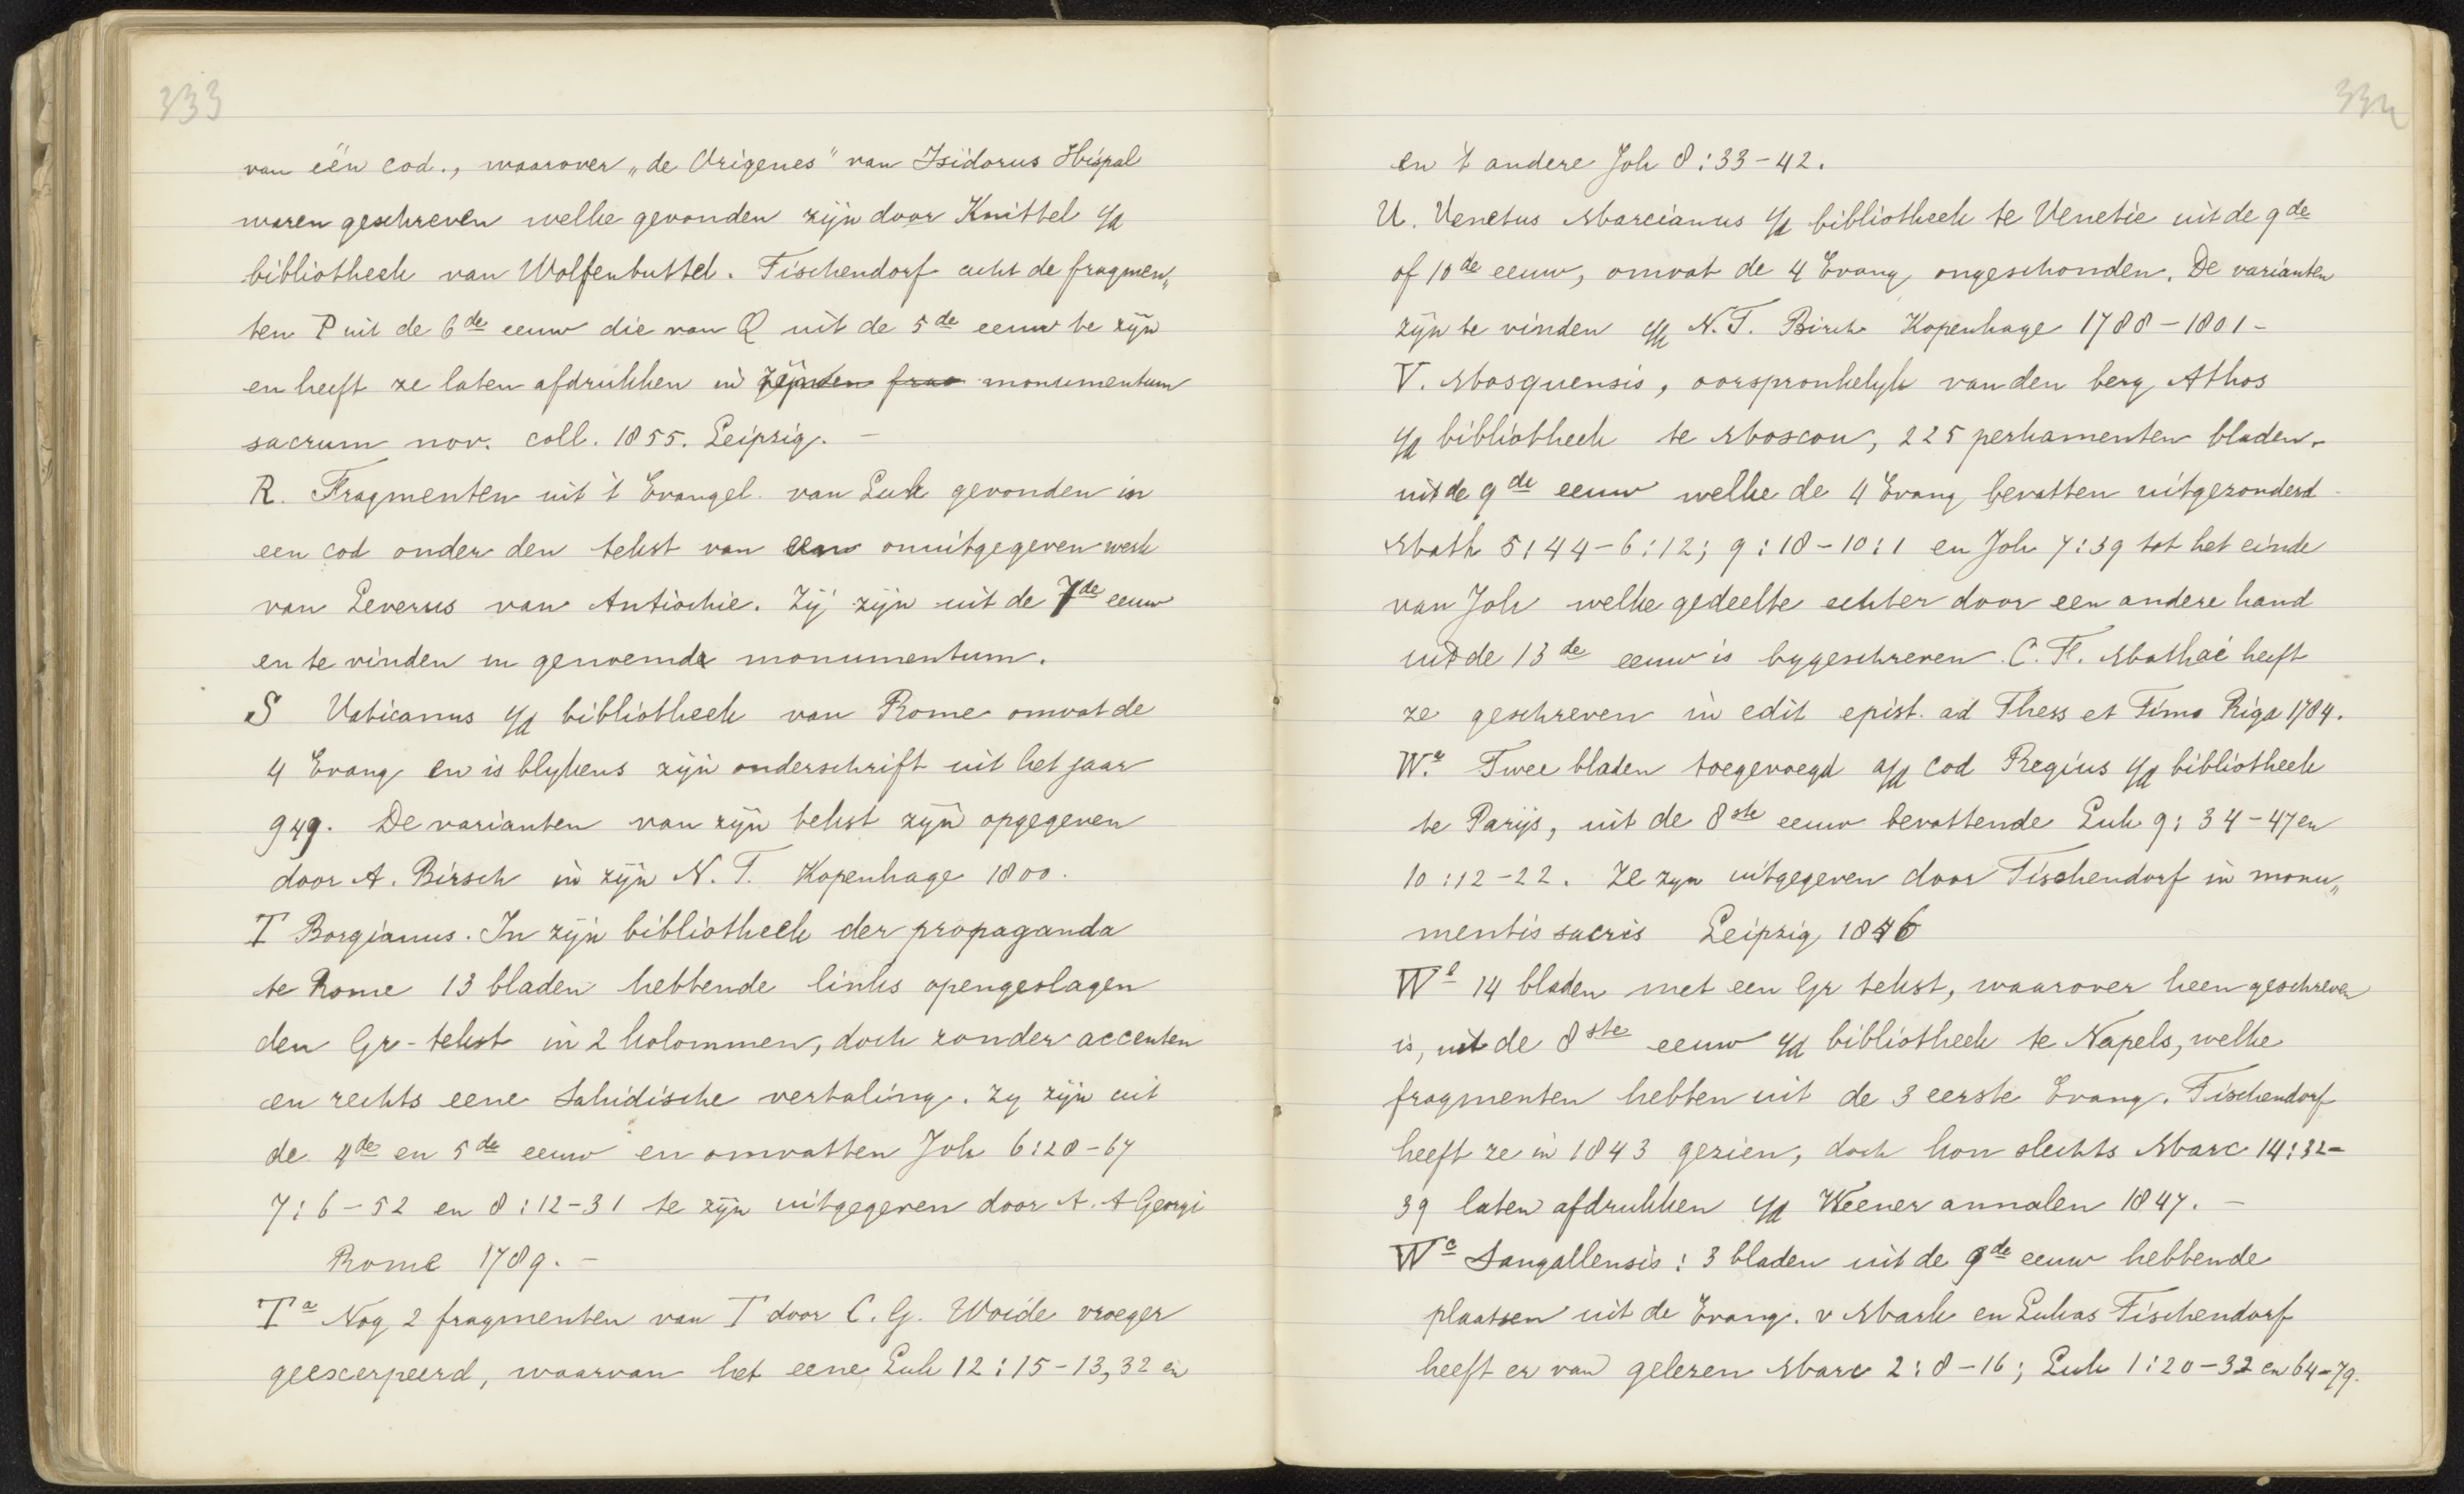 333
van één cod., waarover „de Origenes" van Isidorus Hispal
waren geschreven welke gevonden zijn door Knittel i/d
bibliotheek van Wolfenbuttel. Tischendorf acht de fragmen„
ten P uit de 6de eeuw die van Q uit de 5de eeuw te zijn
en heeft ze laten afdrukken in monumentum
sacrum nov. coll. 1855. Leipzig. —
R. Fragmenten uit 't Evangel. van Luk gevonden in
een cod onder den tekst van een onuitgegeven werk
van Severus van Antiochie. Zij zijn uit de 7de eeuw
en te vinden in genoemde monumentum.
S Vaticanus i/d bibliotheek van Rome omvat de
4 Evang en is blykens zijn onderschrift uit het jaar
949. De varianten van zijn tekst zijn opgegeven
door A. Birsch in zijn N. T. Kopenhage 1800.
T Borgianus. In zijn bibliotheek der propaganda
te Rome 13 bladen hebbende links opengeslagen
den Gr-tekst in 2 kolommen, doch zonder accenten
en rechts eene Sahidische vertaling. Zy zijn uit
de 4de en 5de eeuw en omvatten Joh 6:28-67
7:6-52 en 8:12-31 te zijn uitgegeven door A. A Georgi
Rome 1789. —
Ta Nog 2 fragmenten van T door C. G. Woide vroeger
geëxcerpeerd, waarvan het eene Luk 12:15-13,32 en
334
en 't andere Joh 8:33-42.
U. Venetus Marcianus i/d bibliotheek te Venetie uit de 9de
of 10de eeuw, omvat de 4 Evang ongeschonden. De varianten
zijn te vinden i/h N. T. Birch Kopenhage 1788-1801-
V. Mosquensis, oorspronkelyk van den berg Athos
i/d bibliotheek te Moscou, 225 perkamenten bladen.
uit de 9de eeuw welke de 4 Evang bevatten uitgezonderd
Math 5:44-6:12; 9:18-10:1 en Joh 7:39 tot het einde
van Joh welke gedeelte echter door een andere hand
uit de 13de eeuw is bygeschreven. C. F. Mathaei heeft
ze geschreven in edit epist. ad Thess et Timo Riga 1784.
Wa Twee bladen toegevoegd a/d cod Regius i/d bibliotheek
te Parijs, uit de 8ste eeuw bevattende Luk 9:34-47 en
10:12-22. Ze zyn uitgegeven door Tischendorf in monu„
mentis sacris Leipzig 1846
Wb 14 bladen met een Gr tekst, waarover heen geschreven
is, uit de 8ste eeuw i/d bibliotheek te Napels, welke
fragmenten hebben uit de 3 eerste Evang. Tischendorf
heeft ze in 1843 gezien, doch kon slechts Marc 14:32-
39 laten afdrukken i/d Weener annalen 1847. —
Wc Sangallensis: 3 bladen uit de 9de eeuw hebbende
plaatsen uit de Evang. v Mark en Lukas Tischendorf
heeft er van gelezen Marc 2:8-16; Luk 1:20-32 en 64-79.